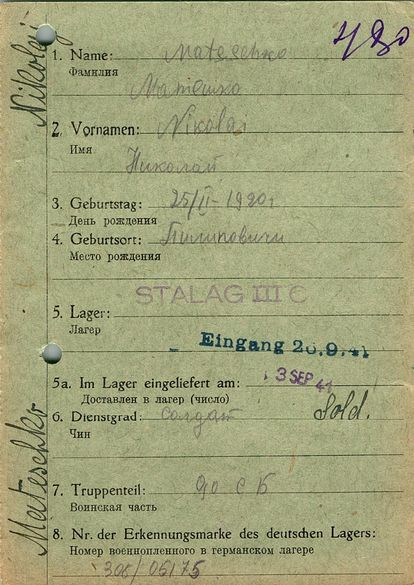 Nikolaj
420
1. Name: Mateschko
Фамилия
Матешко
2. Vornamen: Nikolai
Имя
Николай
3. Geburtstag: 25/II-1920г
День рождения
4. Geburtsort: Пилиповичи
Место рождения
STALAG III C
5. Lager:
Лагер
Eingang 20.9.41
3 SEP 41
5a. Im Lager eingeliefert am:
Доставлен в лагер (число)
6. Dienstgrad: солдат Sold.
Чин
Mateschko
7. Truppenteil: 90 с Б
Воинская часть
8. Nr. der Erkennungsmarke des deutschen Lagers:
Номер военнопленного в германском лагере
308/05175